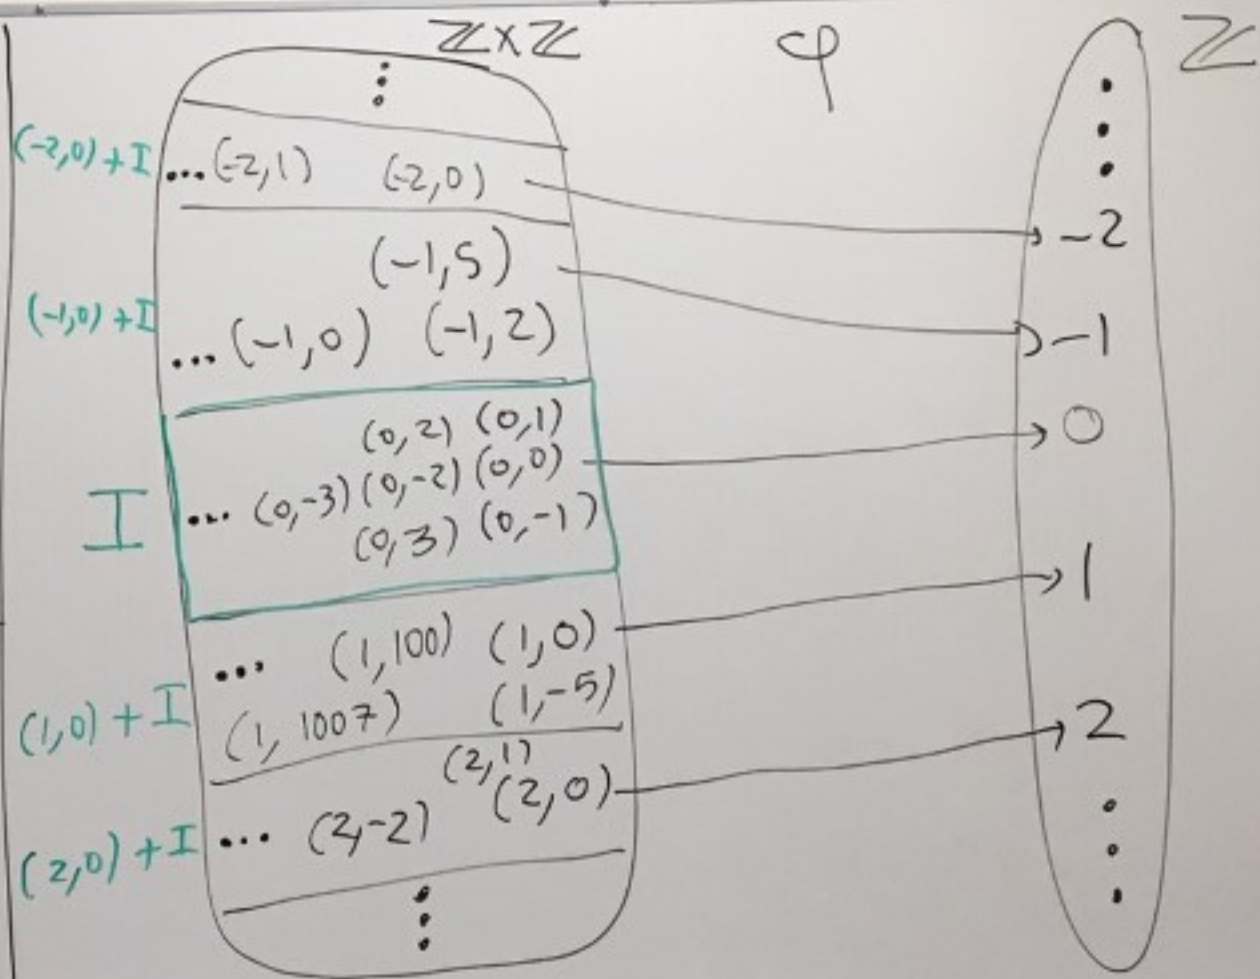 ℤ×ℤ φ ℤ
(-2,0)+I ...(-2,1) (-2,0) -2
(-1,5)
(-1,0)+I ... (-1,0) (-1,2) -1
(0,2) (0,1) 0
I ... (0,-3) (0,-2) (0,0)
(0,3) (0,-1)
... (1,100) (1,0) 1
(1,0)+I (1,1007) (1,-5)
(2,1) 2
(2,0)+I ... (2,-2) (2,0)